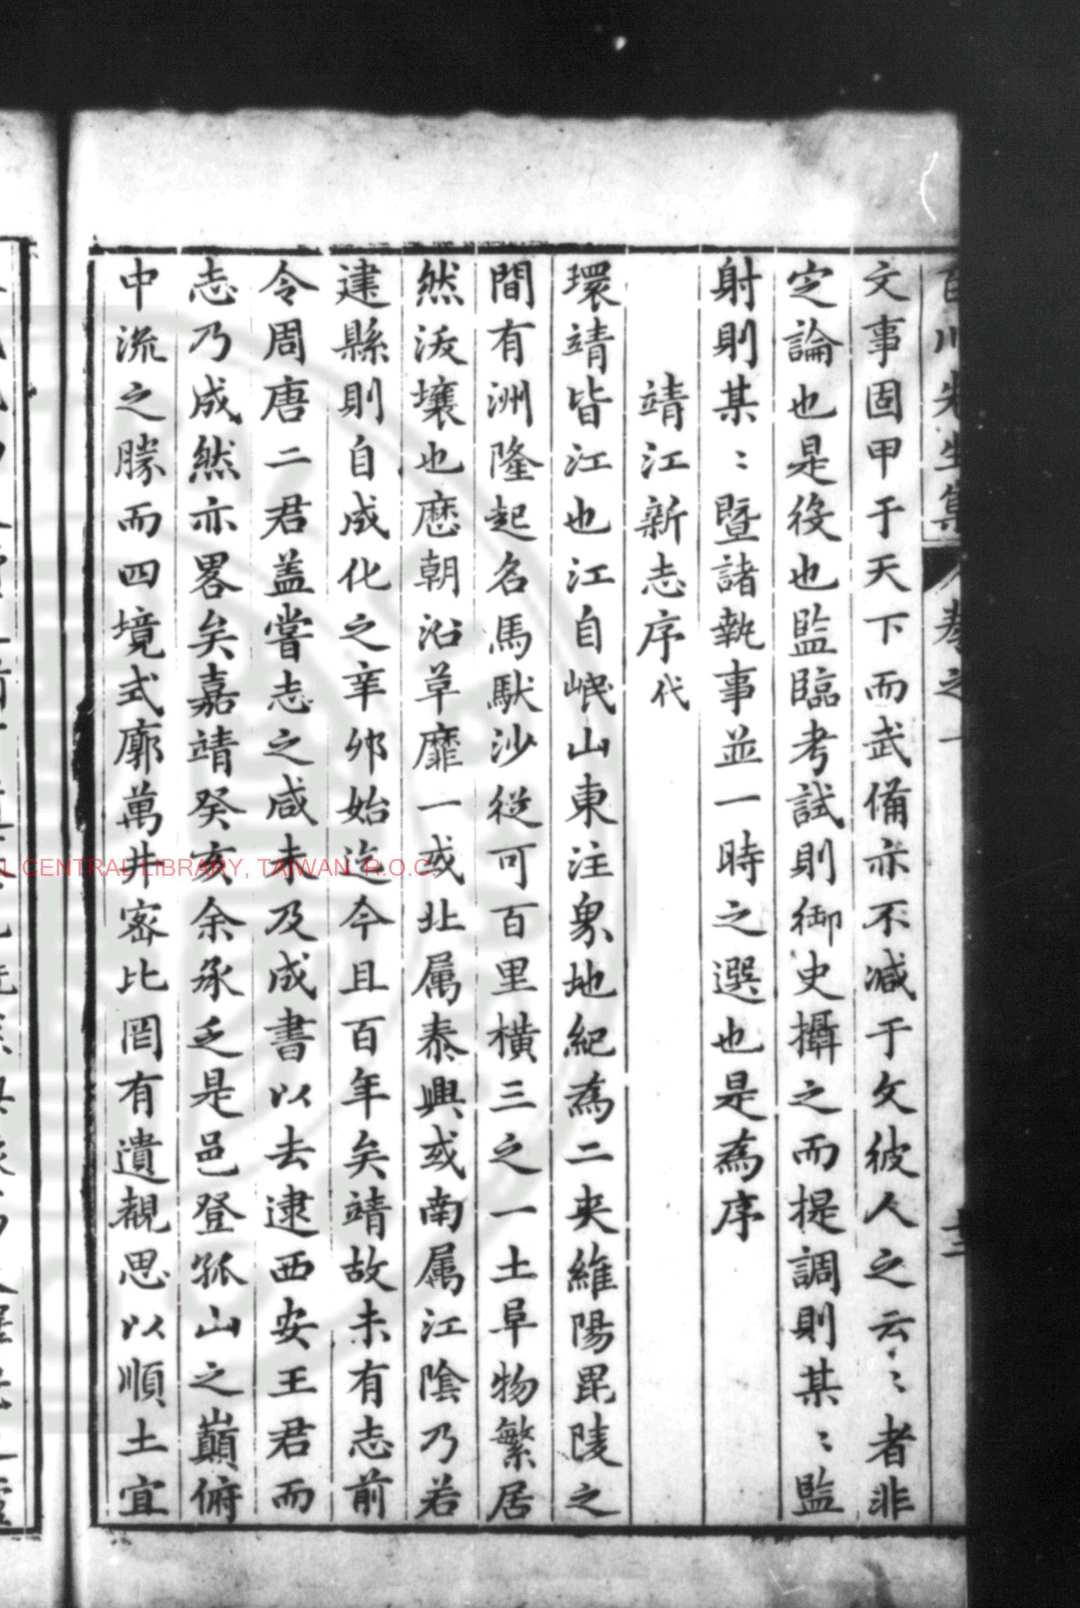 文事固甲于天下而武備亦不減于文彼人之云〻者非
定論也是役也監臨考試則御史攝之而提調則某〻監
射則某〻暨諸執事並一時之選也是為序
靖江新志序代
環靖皆江也江自岷山東注象地紀為二夾維陽毘陵之
間有洲隆起名馬䭾沙從可百里橫三之一土阜物繁居
然沃壤也歷朝沿草靡一或北属泰興或南属江陰乃若
建縣則自成化之辛卯始迄今且百年矣靖故未有志前
令周唐二君盖嘗志之咸未及成書以去逮西安王君而
志乃成然亦畧矣嘉靖癸亥余承乏是邑登孤山之巔俯
中流之勝而四境式廓萬井密比罔有遺觀思以順土宜
CENTRAL LIBRARY, TAIWAN R.O.C